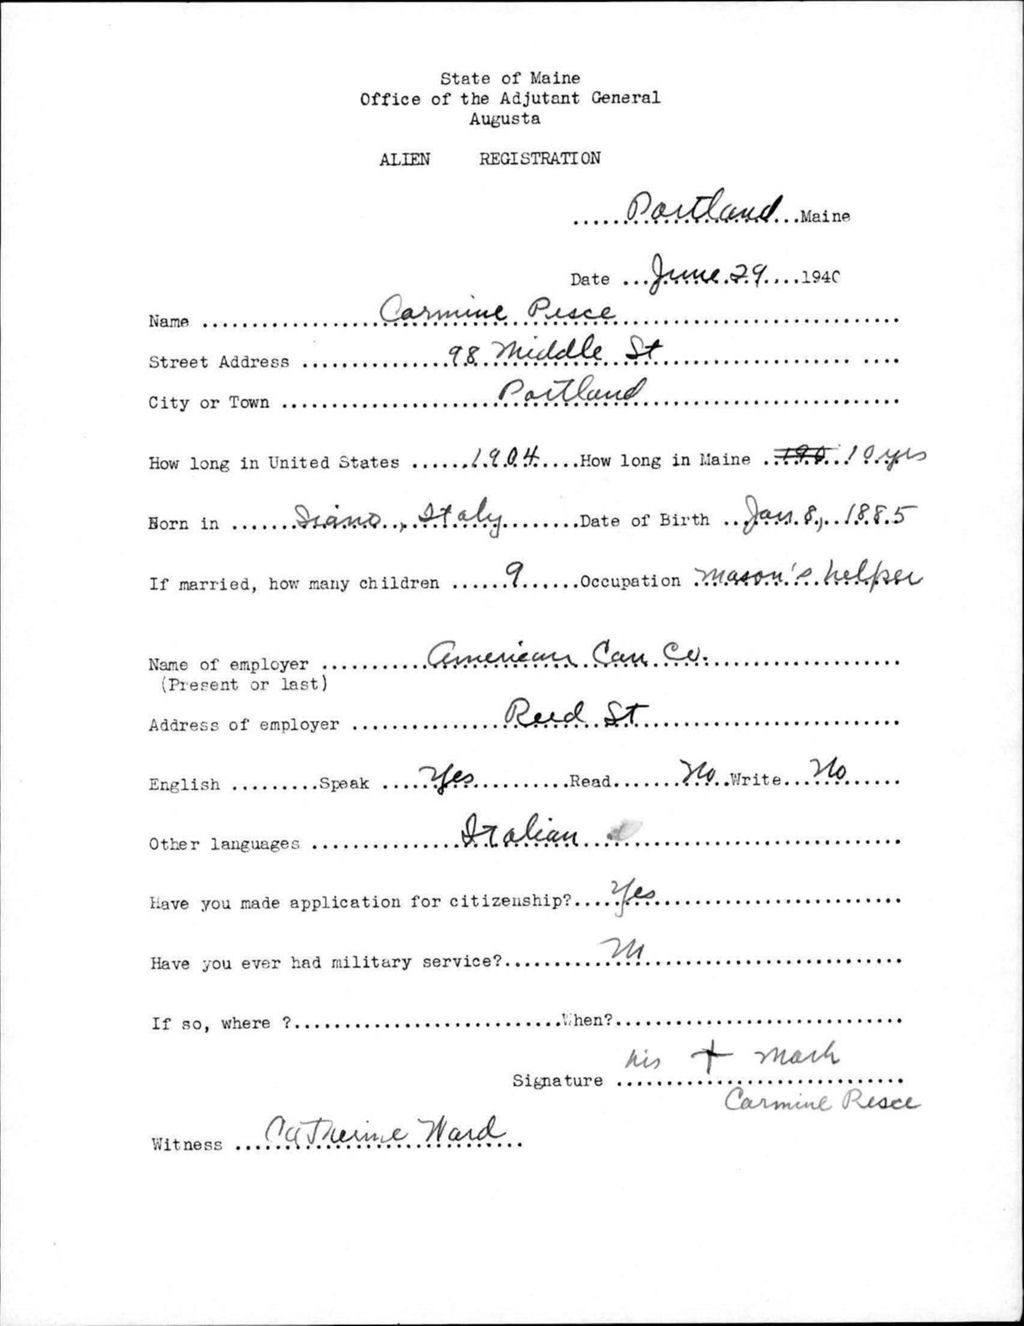 State of Maine
Office of the Adjutant General
Augusta
ALIEN REGISTRATION
.....Portland...Maine
Date ...June.29....1940
Name ....................Carmine Pesce............................
Street Address ................98 Middle St................... ....
City or Town .....................Portland..........................
How long in United States ......1904....How long in Maine ..190..10 yrs
Born in ......Siano., Italy.........Date of Birth ..Jan. 8,..1885
If married, how many children ......9......Occupation .mason's.helper
Name of employer ..........American Can Co....................
(Present or last)
Address of employer ...............Reed St........................
English .........Speak .....Yes..........Read.......No..Write...No......
Other languages ...............Italian............................
Have you made application for citizenship?.....Yes.........................
Have you ever had military service?..........No..........................
If so, where ?...........................When?............................
his + mark
Signature .............................
Carmine Pesce
Witness ...Catherine Ward..